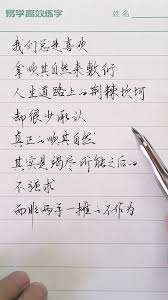 易学高效练字 姓名
我们总是喜欢
拿顺其自然来敷衍
人生道路上的荆棘坎坷
却很少承认
真正的顺其自然
其实是竭尽所能之后的
不强求
而非两手一摊的不作为